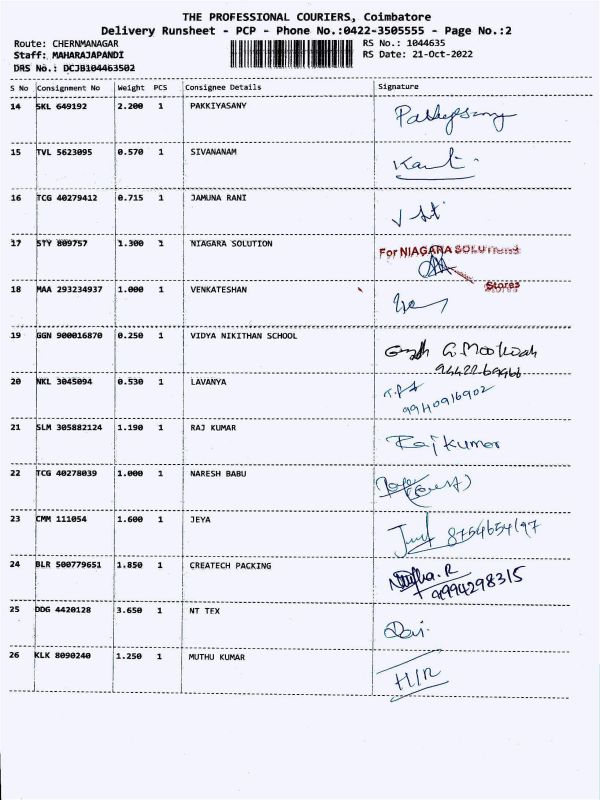 THE PROFESSIONAL COURIERS, Coimbatore
Delivery Runsheet - PCP - Phone No.:0422-3505555 - Page No.:2
Route: CHERNMANAGAR RS No.: 1044635
Staff: MAHARAJAPANDI RS Date: 21-Oct-2022
DRS No.: DCJB104463502
S No Consignment No Weight PCS Consignee Details Signature
14 SKL 649192 2.200 1 PAKKIYASANY
15 TVL 5623095 0.570 1 SIVANANAM
16 TCG 40279412 0.715 1 JAMUNA RANI
17 STY 809757 1.300 1 NIAGARA SOLUTION For NIAGARA SOLUTIONS
Stores
18 MAA 293234937 1.000 1 VENKATESHAN
19 GGN 900016870 0.250 1 VIDYA NIKITHAN SCHOOL
20 NKL 3045094 0.530 1 LAVANYA
9940916902
21 SLM 305882124 1.190 1 RAJ KUMAR Rajkumar
22 TCG 40278039 1.000 1 NARESH BABU
23 CMM 111054 1.600 1 JEYA 8754654197
24 BLR 500779651 1.850 1 CREATECH PACKING
9994298315
25 DDG 4420128 3.650 1 NT TEX
26 KLK 8090240 1.250 1 MUTHU KUMAR